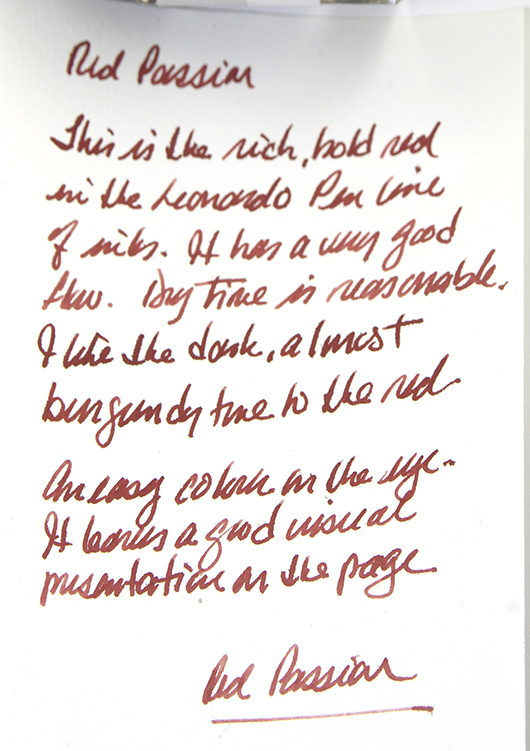 Red Passion
This is the rich, bold red
in the Leonardo Pen line
of inks. It has a very good
flow. Dry time is reasonable.
I like the dark, almost
burgundy tone to the red.
An easy colour on the eye.
It leaves a good visual
presentation on the page
Red Passion